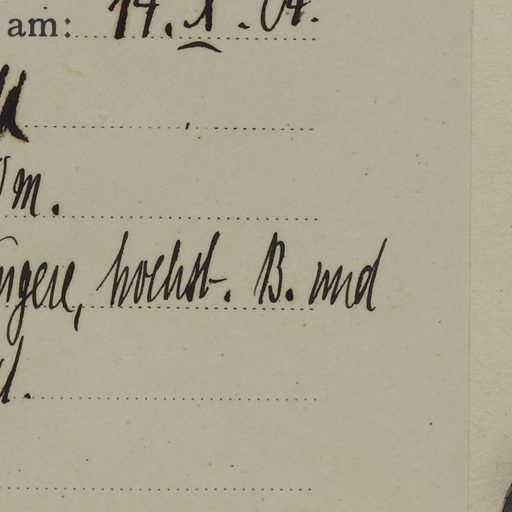 am: 14. X. 04.
m.
ngere, hochst. B. und